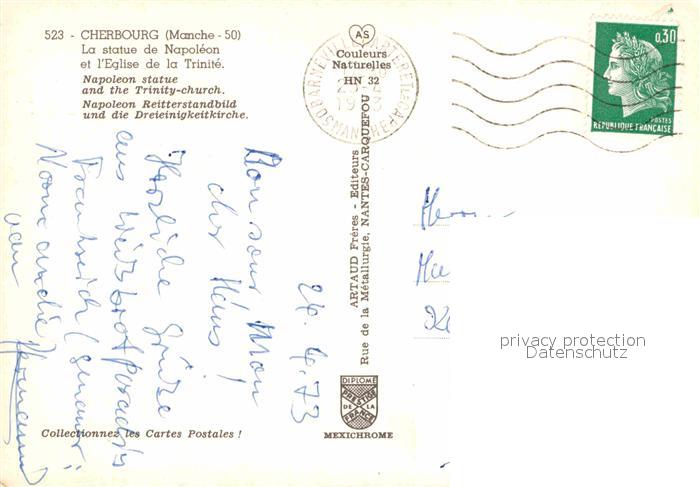 523 - CHERBOURG (Manche - 50)
La statue de Napoléon
et l'Eglise de la Trinité.
Napoleon statue
and the Trinity-church.
Napoleon Reitterstandbild
und die Dreieinigkeitkirche.
AS
Couleurs
Naturelles
HN 32
0,30
POSTES
RÉPUBLIQUE FRANÇAISE
ARTAUD Frères - Editeurs
Rue de la Métallurgie, NANTES-CARQUEFOU
24.4.73
Bon jour Mon
cher Hans!
Herzliche Grüße
aus
Frankreich (genauer:
Normandie)
von
Herrn
privacy protection
Datenschutz
DIPLOME
PRESTIGE
DE LA
FRANCE
MEXICHROME
Collectionnez les Cartes Postales !